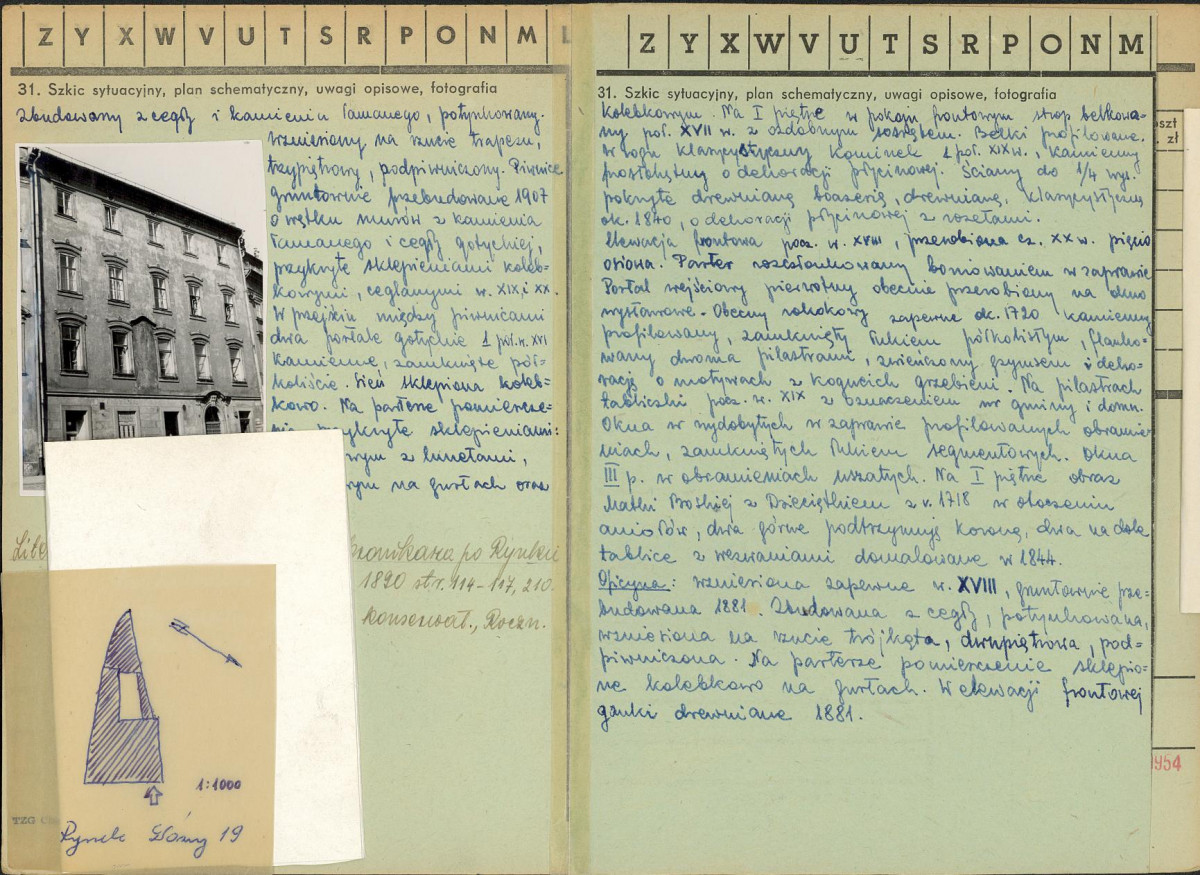 Z Y X W V U T S R P O N M L
31. Szkic sytuacyjny, plan schematyczny, uwagi opisowe, fotografia
Zbudowany z cegły i kamienia łamanego, potynkowany.
Wzniesiony na rzucie trapezu,
trzypiętrowy, podpiwniczony. Piwnice
gruntownie przebudowane 1907
o wątku murów z kamienia
łamanego i cegły gotyckiej,
przykryte sklepieniami koleb=
kowymi, ceglanymi w. XIX i XX.
W przejściu między piwnicami
dwa portale gotyckie 1 poł. w. XVI
kamienne, zamknięte pół=
koliście. Sień sklepiona koleb=
kowo. Na parterze pomieszcze=
nia przykryte sklepieniami:
wym z lunetami,
wym na gurtach oraz
kronikarza po Rynku
1890 str. 114-117, 210.
konserwat., Roczn.
1:1000
Rynek Główny 19
TZG
Z Y X W V U T S R P O N M
31. Szkic sytuacyjny, plan schematyczny, uwagi opisowe, fotografia
kolebkowym. Na I piętrze w pokoju frontowym strop belkowa=
ny poł. XVII w. z ozdobnym sosrębem. Belki profilowane.
W rogu klasycystyczny kominek 1 poł. XIX w., kamienny
prostokątny o dekoracji płycinowej. Ściany do 1/4 wys.
pokryte drewnianą boazerią, drewnianą, klasycystyczną
ok. 1840, o dekoracji płycinowej z rozetami.
Elewacja frontowa pocz. w. XVIII, przerobiona cz. XX w. pięcio
osiowa. Parter rozczłonkowany boniowaniem w zaprawie
Portal wejściowy pierwotny obecnie przerobiony na okno
wystawowe. Obecny rokokowy zapewne ok. 1720 kamienny
profilowany, zamknięty łukiem półkolistym, flanko=
wany dwoma pilastrami, zwieńczony gzymsem i deko=
racją o motywach z kogucich grzebieni. Na pilastrach
tabliczki pocz. w. XIX z oznaczeniem nr gminy i domu.
Okna w wydobytych w zaprawie profilowanych obramie=
niach, zamkniętych łukiem segmentowych. Okna
III p. w obramieniach uszatych. Na I piętrze obraz
Matki Boskiej z Dzieciątkiem z r. 1718 w otoczeniu
aniołów, dwa górne podtrzymują koronę, dwa na dole
tablice z wezwaniami domalowane w 1844.
Oficyna: wzniesiona zapewne w. XVIII, gruntownie prze=
budowana 1881. Zbudowana z cegły, potynkowana,
wzniesiona na rzucie trójkąta, dwupiętrowa, pod=
piwniczona. Na parterze pomieszczenie sklepio=
ne kolebkowo na gurtach. W elewacji frontowej
ganki drewniane 1881.
oszt
zł
1954